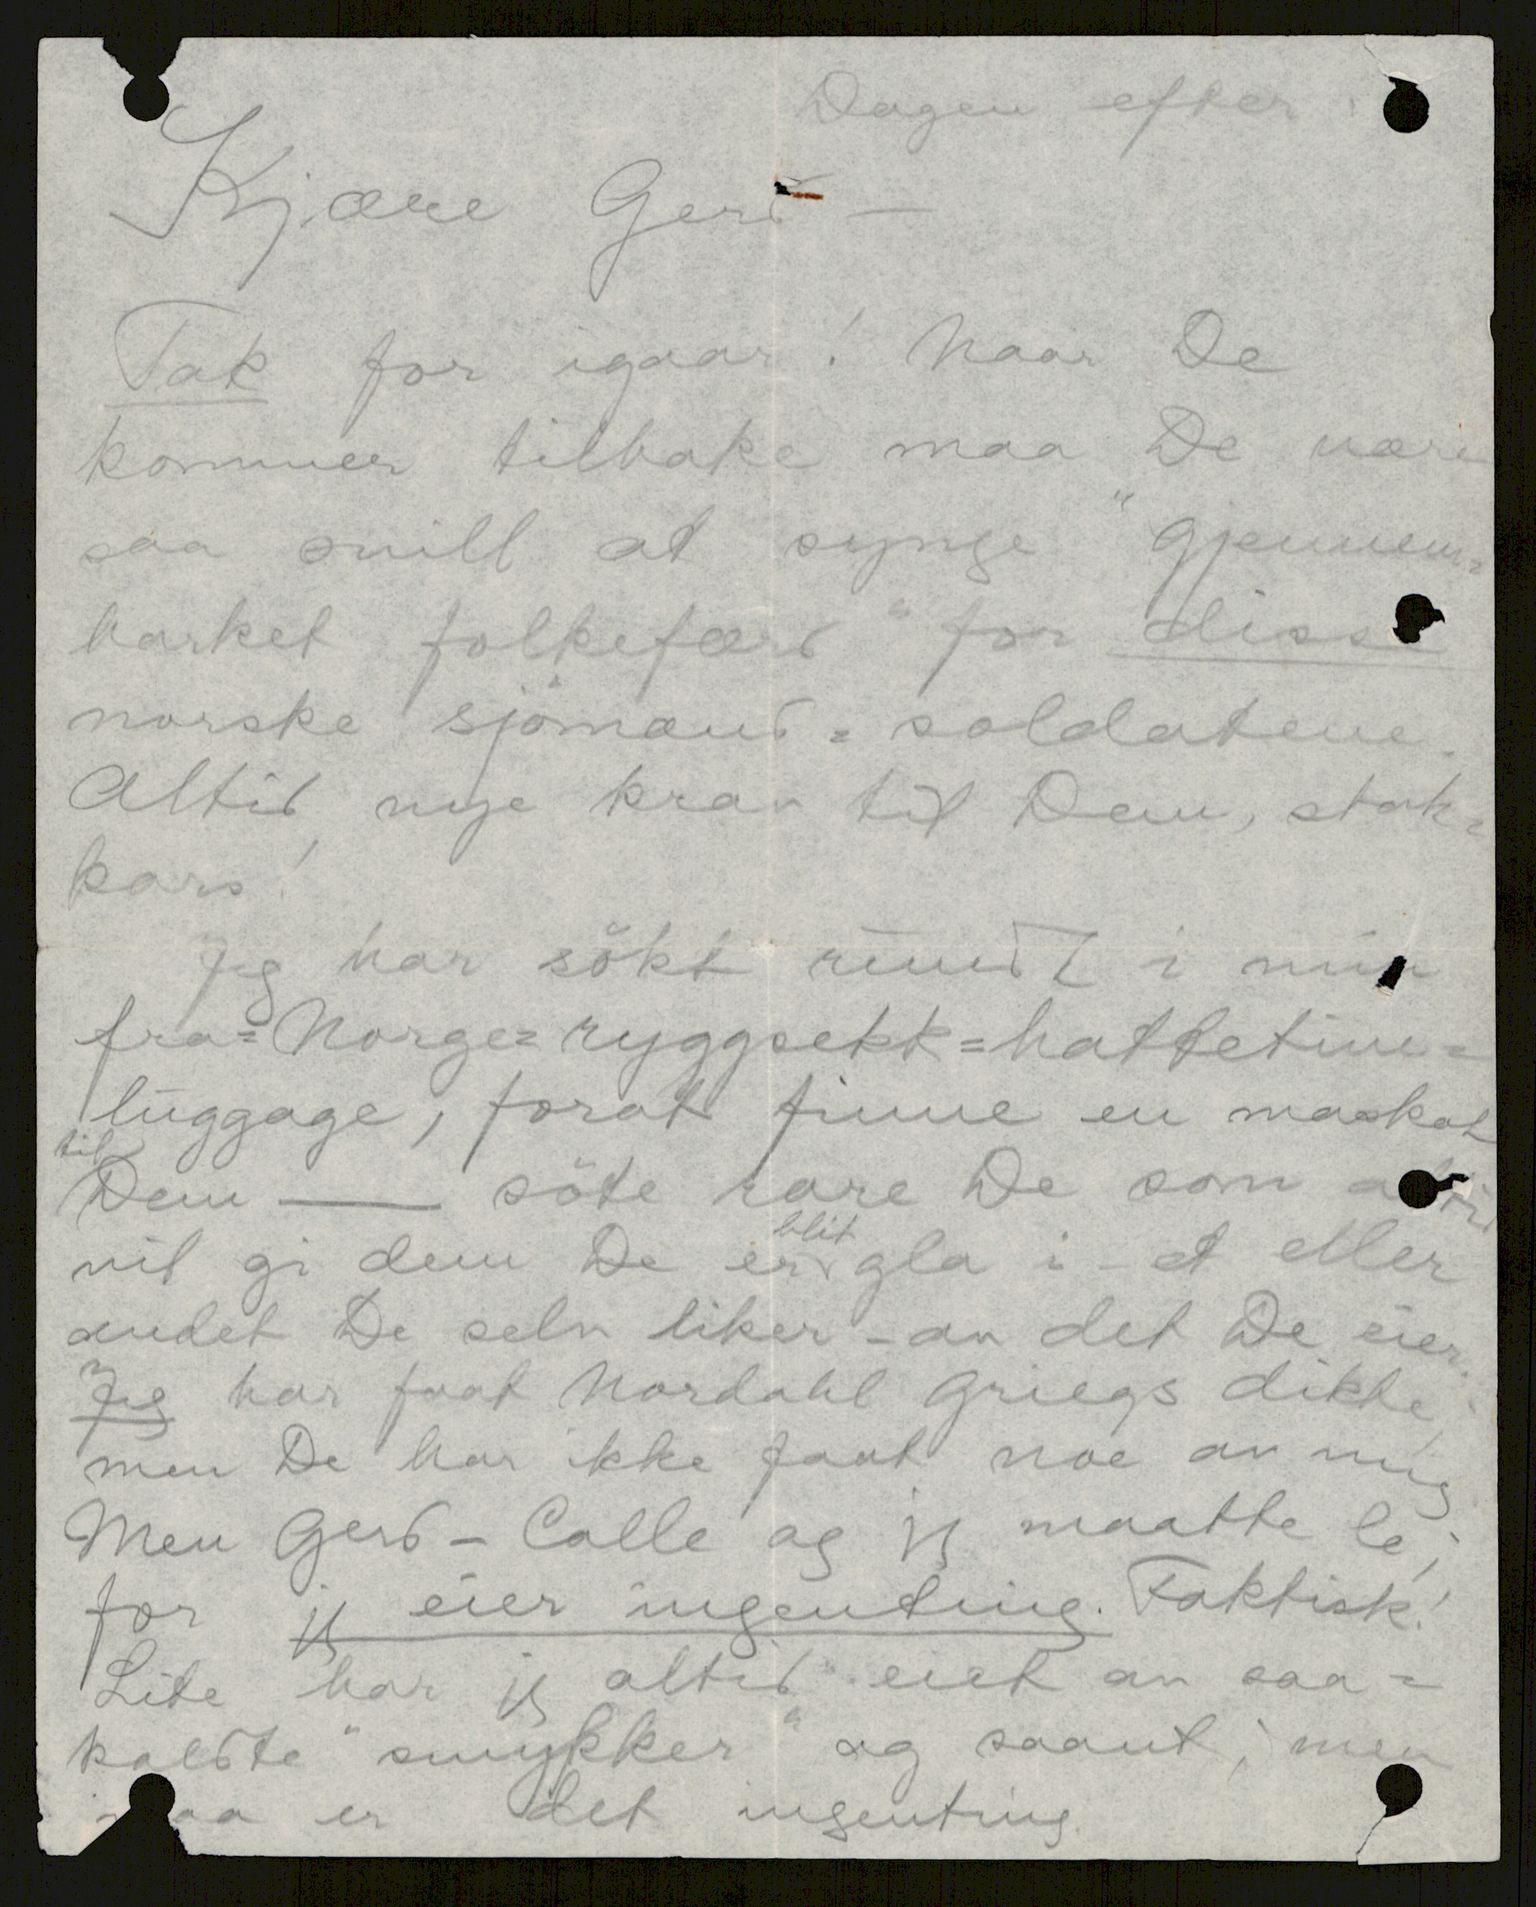 Dagen efter
Kjære Gerd —
Tak for igaar! Naar De
kommer tilbake maa De være
saa snill at synge "Gjennem=
barket folkefærd" for disse
norske sjömænd = soldatene.
Altid nye krav til Dem, stak=
kars!
Jeg har sökt rundt i min
fra=Norge=ryggsekk=hattetine=
luggage, forat finne en maskot
til
Dem — söte rare De som altid
vil gi dem De er blit gla i - et eller
andet De selv liker - av det De eier.
Jeg har faat Nordahl Griegs dikte,
men De har ikke faat noe av mig
Men Gerd - Calle og jeg maatte le,
for jeg eier ingenting. Faktisk!
Lite har jeg altid eiet av saa=
kaldte "smykker" og saant, men
er det ingenting.